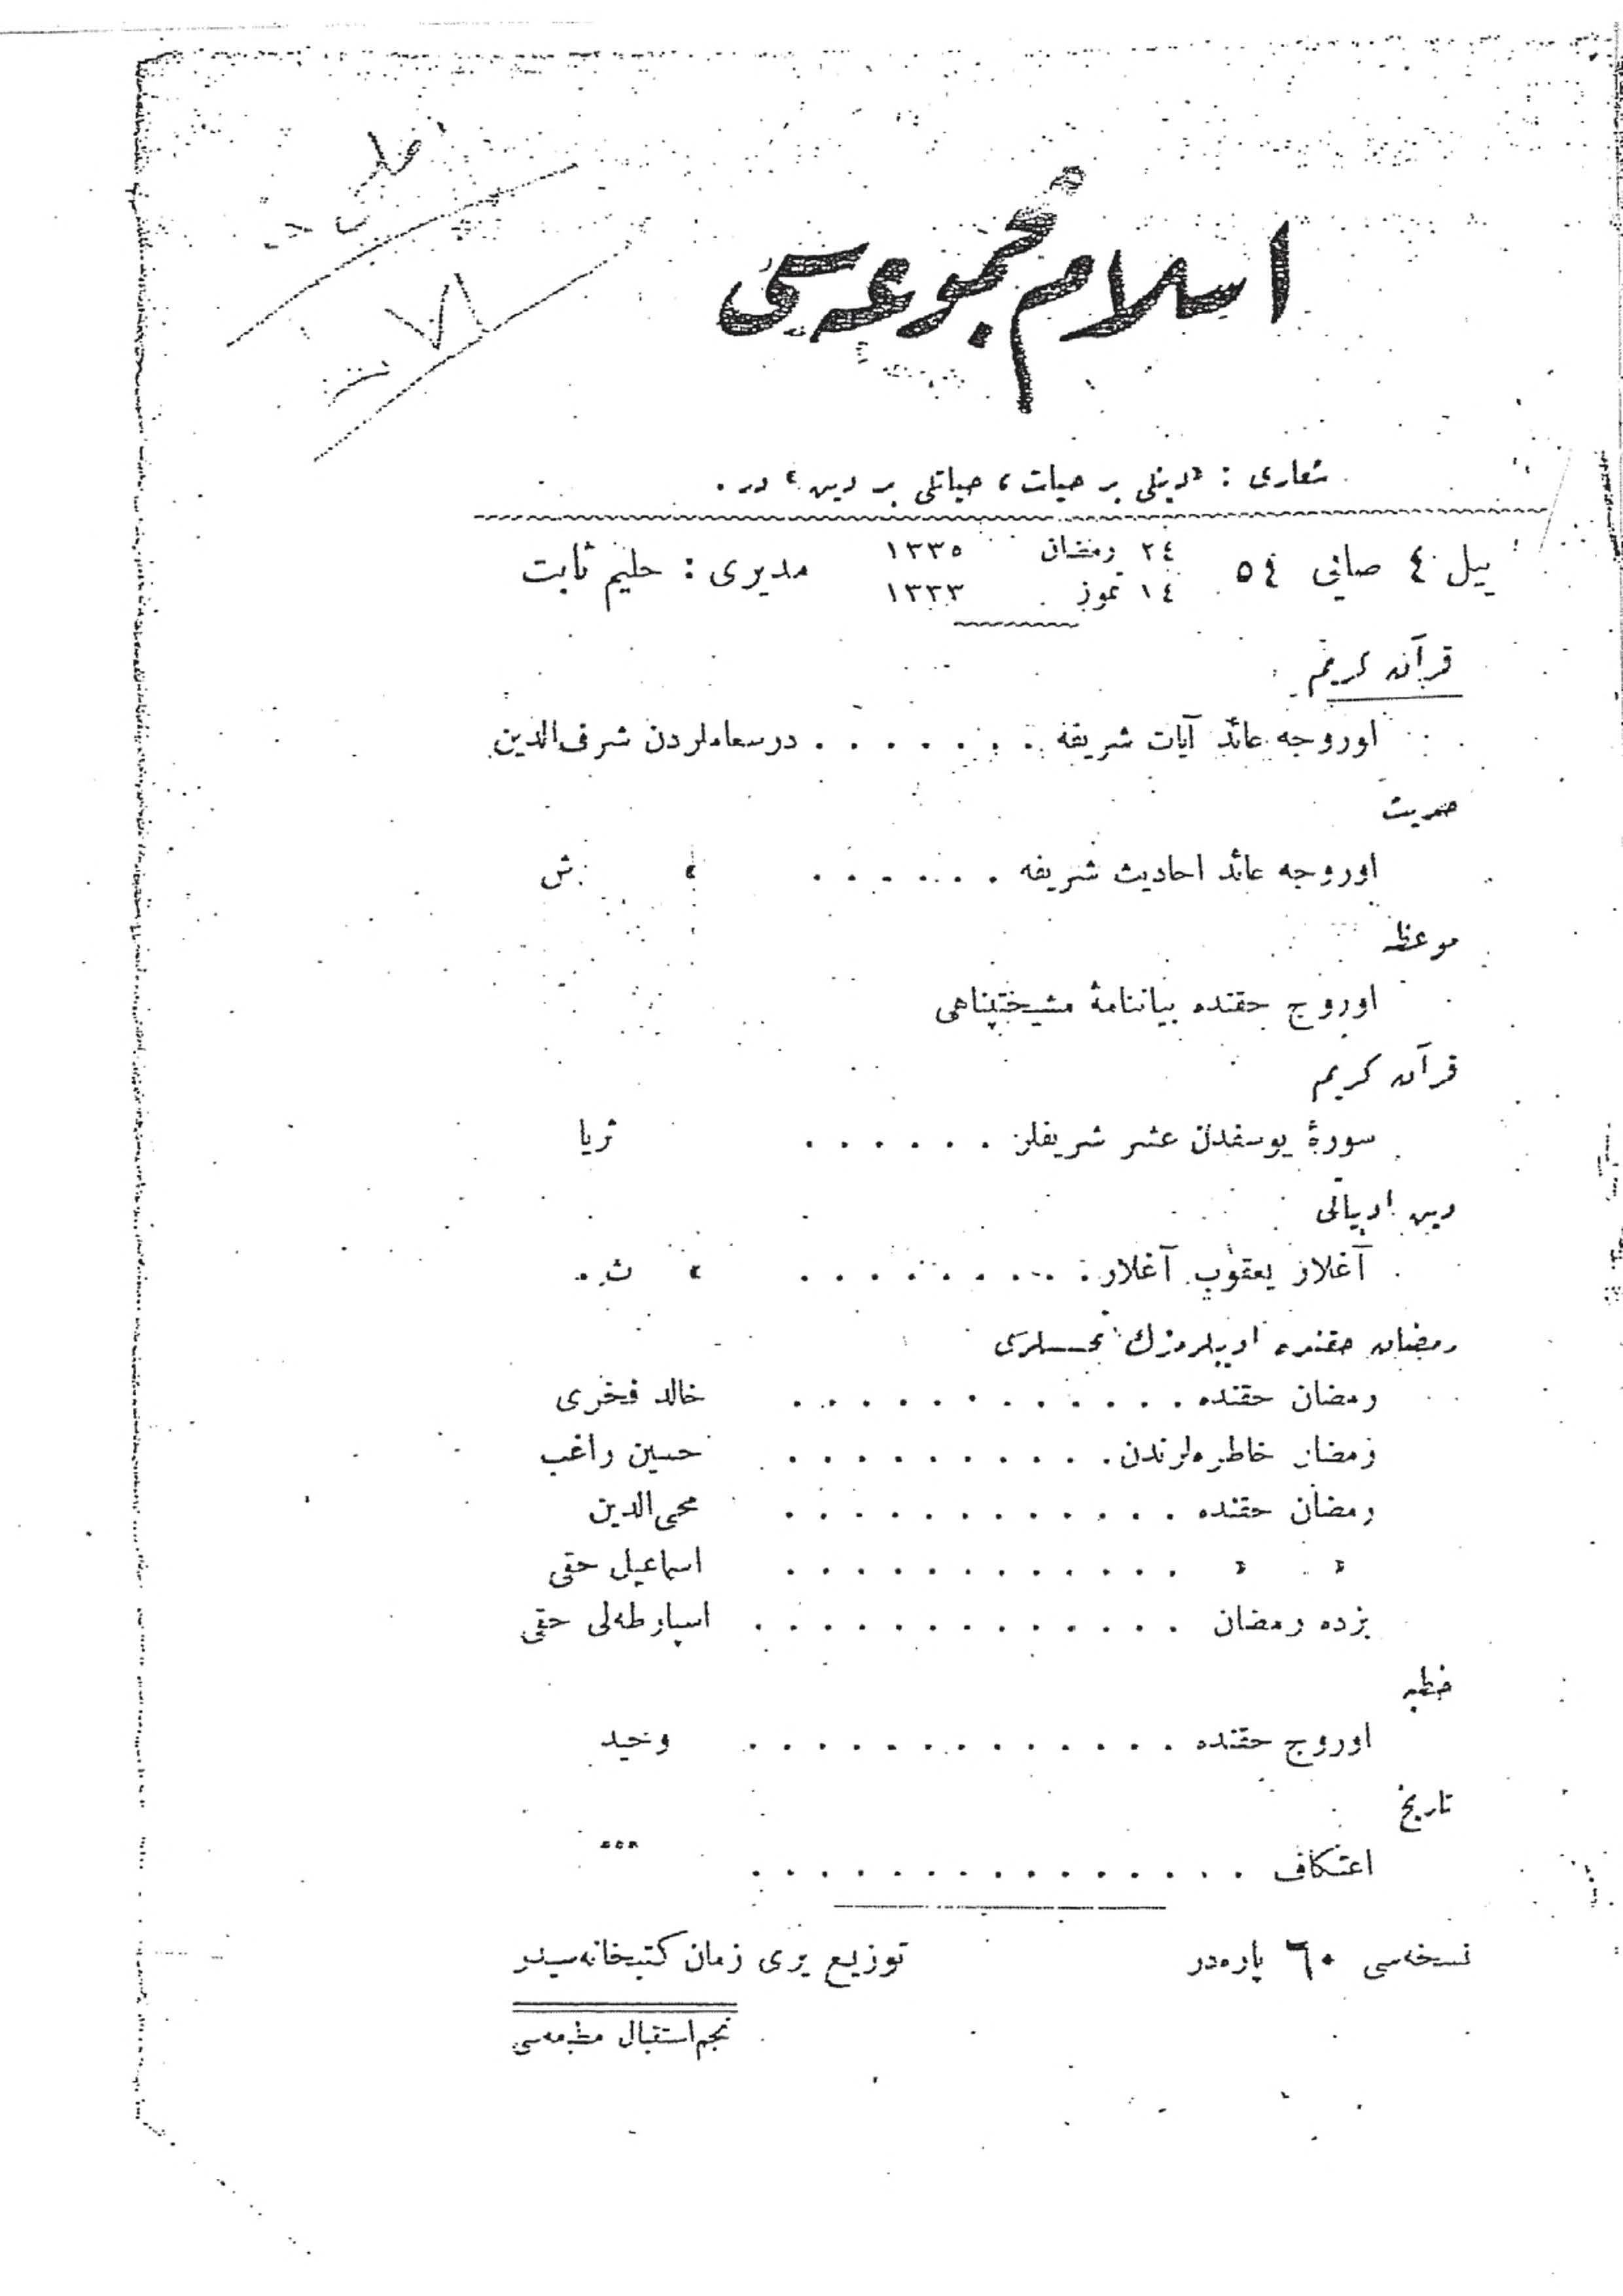 اسلام مجموعه‌سی
شعاری : «دینلی بر حیات ، حیاتلی بر دین» در .
ییل ٤ صایی ٥٤
٢٤ رمضان ١٣٣٥
١٤ تموز ١٣٣٣
مدیری : حلیم ثابت
قرآن کریم
اوروجه عائد آیات شریفه . . . . . . . درسعاملردن شرف‌الدین
حدیث
اوروجه عائد احادیث شریفه . . . . . . » ش
موعظه
اوروج حقنده بیاننامهٔ مشیختپناهی
قرآن کریم
سورهٔ یوسفدن عشر شریفلر . . . . . . ثریا
دین ادبیاتی
آغلار یعقوب آغلار . . . . . . . . . » ث .
رمضان حقنده ادیبلرمزك تحسسلری
رمضان حقنده . . . . . . . . . . . . خالد فخری
رمضان خاطره‌لرندن . . . . . . . . . . حسین راغب
رمضان حقنده . . . . . . . . . . . . محی‌الدین
» » . . . . . . . . . . . . اسماعیل حقی
بزده رمضان . . . . . . . . . . . . . اسپارطه‌لی حقی
خطبه
اوروج حقنده . . . . . . . . . . . . . وحید
تاریخ
اعتکاف . . . . . . . . . . . . . . . ***
نسخه‌سی ٦٠ پاره‌در
توزیع یری زمان کتبخانه‌سیدر
نجم استقبال مطبعه‌سی